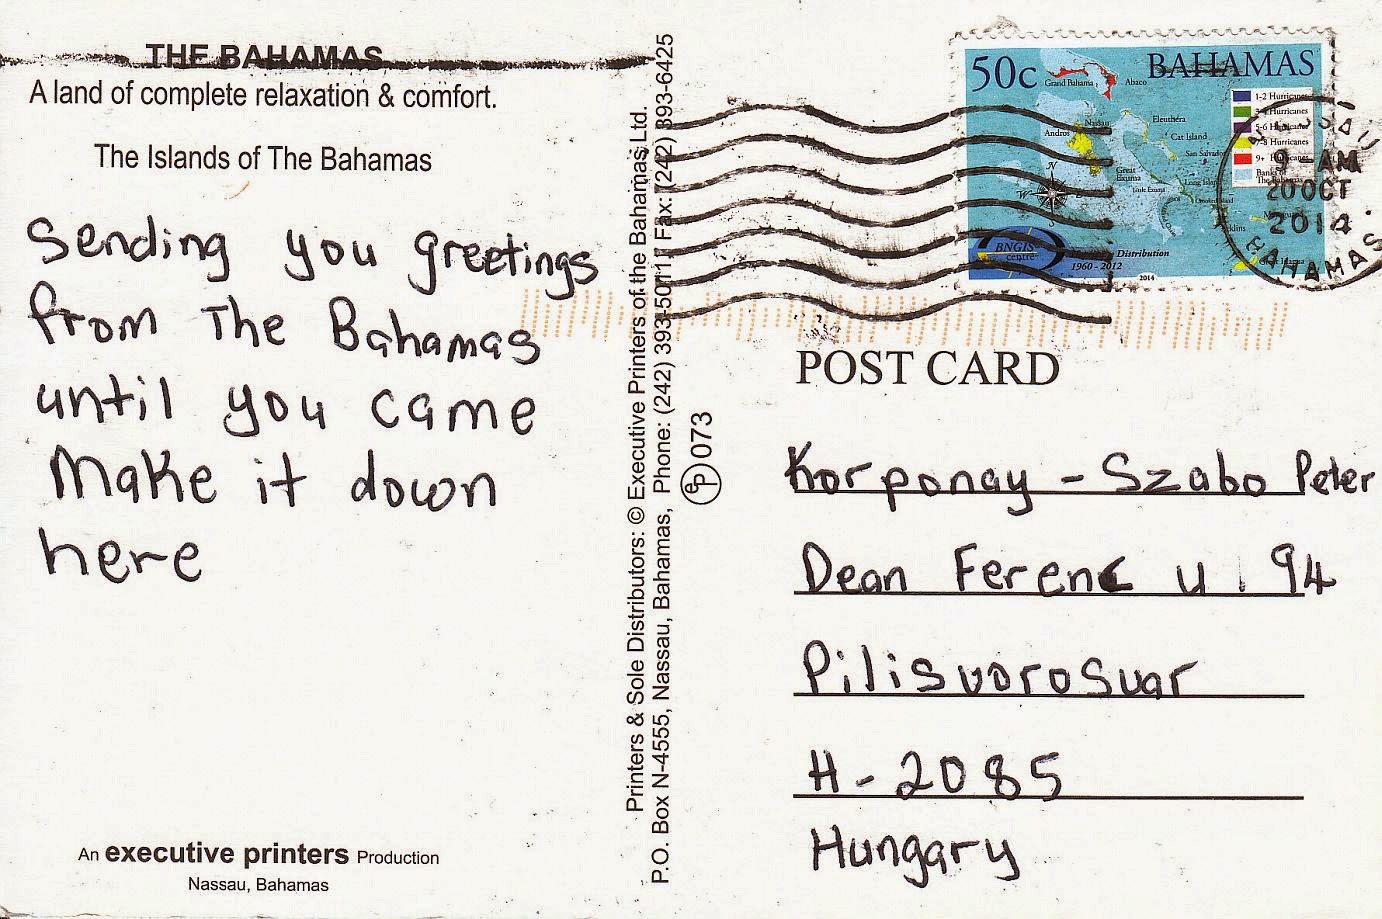 THE BAHAMAS
A land of complete relaxation & comfort.
The Islands of The Bahamas
Sending you greetings
from The Bahamas
until you came
Make it down
here
An executive printers Production
Nassau, Bahamas
Printers & Sole Distributors: © Executive Printers of the Bahamas Ltd.
P.O. Box N-4555, Nassau, Bahamas, Phone: (242) 393-5011 / Fax: (242) 393-6425
ep 073
50c
BAHAMAS
Grand Bahama
Abaco
1-2 Hurricanes
3-4 Hurricanes
5-6 Hurricanes
7-8 Hurricanes
9+ Hurricanes
Banks of
The Bahamas
Nassau
Eleuthera
Andros
Cat Island
San Salvador
Great
Exuma
Little Exuma
Long Island
Crooked Island
N
W
S
BNGIS
centre
1960 - 2012
Distribution
2014
9 AM
20 OCT
2014
BAHAMAS
POST CARD
Korponay - Szabo Peter
Dean Ferenc u. 94
Pilisvorosvar
H-2085
Hungary